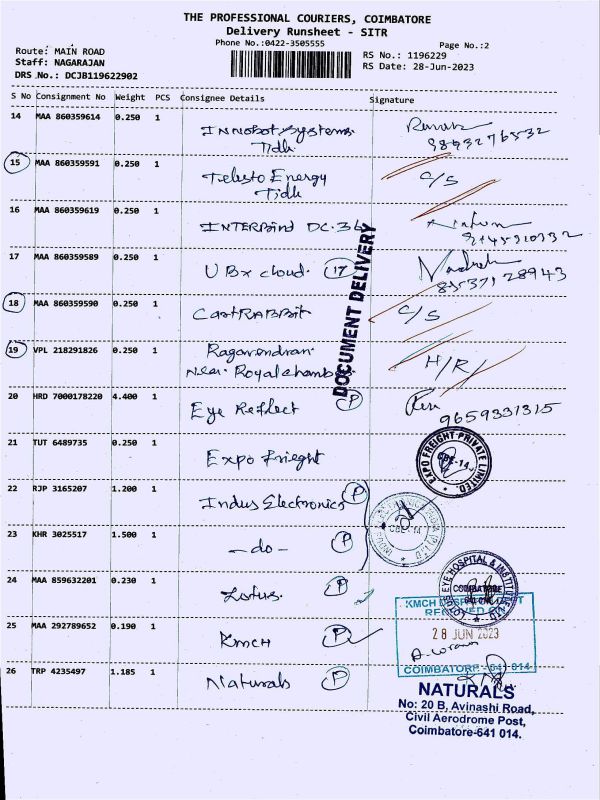 THE PROFESSIONAL COURIERS, COIMBATORE
Delivery Runsheet - SITR
Phone No.:0422-3505555
Page No.:2
Route: MAIN ROAD
Staff: NAGARAJAN
DRS No.: DCJB119622902
RS No.: 1196229
RS Date: 28-Jun-2023
S No Consignment No Weight PCS Consignee Details Signature
14 MAA 860359614 0.250 1 Innobot Systems
Tidh
15 MAA 860359591 0.250 1 Telesto Energy C/S
Tidh
16 MAA 860359619 0.250 1 INTERPOINT DC.
17 MAA 860359589 0.250 1 UBx cloud. 17
83371 28943
18 MAA 860359590 0.250 1 CartRABBit C/S
19 VPL 218291826 0.250 1 Ragavendran H/R/
Near Royal
DOCUMENT DELIVERY
20 HRD 7000178220 4.400 1 Eye Reflect P
9659331315
21 TUT 6489735 0.250 1 Expo Frieght
EXPO FREIGHT PRIVATE LIMITED.
CBE-14
22 RJP 3165207 1.200 1 Indus Electronics P
23 KHR 3025517 1.500 1 -do- P
CBE-14
24 MAA 859632201 0.230 1 Lotus. P
EYE HOSPITAL & INSTITUTE
COIMBATORE
25 MAA 292789652 0.190 1 KMCH P
KMCH
RECEIVED ON
28 JUN 2023
COIMBATORE - 641 014
26 TRP 4235497 1.185 1 Naturals P
NATURALS
No: 20 B, Avinashi Road,
Civil Aerodrome Post,
Coimbatore-641 014.